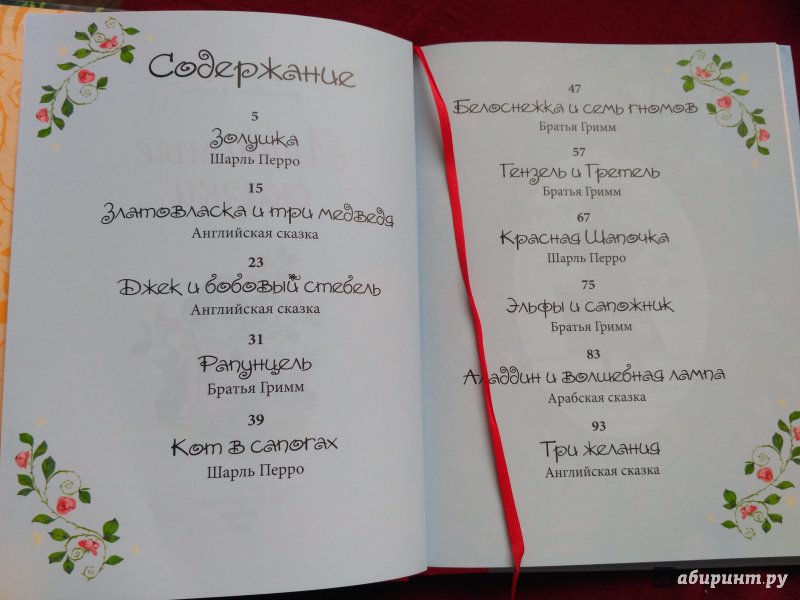 Содержание
5
Золушка
Шарль Перро
15
Златовласка и три медведя
Английская сказка
23
Джек и бобовый стебель
Английская сказка
31
Рапунцель
Братья Гримм
39
Кот в сапогах
Шарль Перро
47
Белоснежка и семь гномов
Братья Гримм
57
Гензель и Гретель
Братья Гримм
67
Красная Шапочка
Шарль Перро
75
Эльфы и сапожник
Братья Гримм
83
Аладдин и волшебная лампа
Арабская сказка
93
Три желания
Английская сказка
Лабиринт.ру